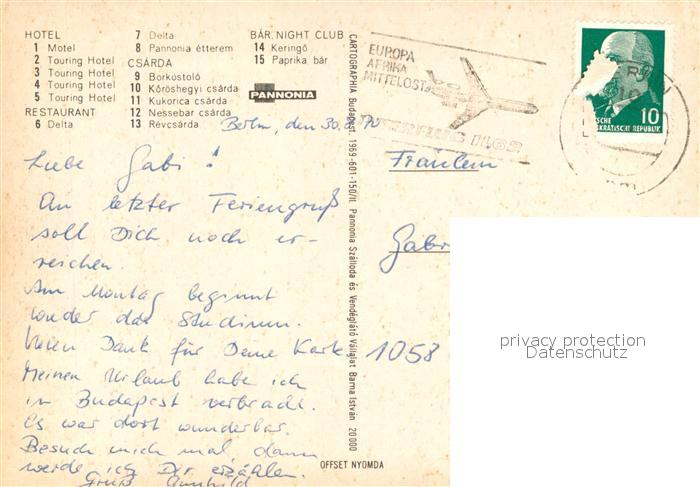 HOTEL
1 Motel
2 Touring Hotel
3 Touring Hotel
4 Touring Hotel
5 Touring Hotel
RESTAURANT
6 Delta
7 Delta
8 Pannonia étterem
CSÁRDA
9 Borkóstoló
10 Kőröshegyi csárda
11 Kukorica csárda
12 Nessebar csárda
13 Révcsárda
BÁR, NIGHT CLUB
14 Keringő
15 Paprika bár
PANNONIA
CARTOGRAPHIA Budapest 1969-601-150/II. Pannonia Szálloda és Vendéglátó Vállalat Barna István 20 000
OFFSET NYOMDA
EUROPA
AFRIKA
MITTELOST
INTERFLUG
10
SCHE
KRATISCHE REPUBLIK
Berlin, den 30.8.70
Liebe Gabi!
An letzter Feriengruß
soll Dich noch er-
reichen.
Am Montag beginnt
wieder das Studium.
Vielen Dank für Deine Karte
Meinen Urlaub habe ich
in Budapest verbracht.
Es war dort wunderbar.
Besuch mich mal, dann
werde ich Dir erzählen.
Gruß Gunhild
Fräulein
Gabr
1058
privacy protection
Datenschutz